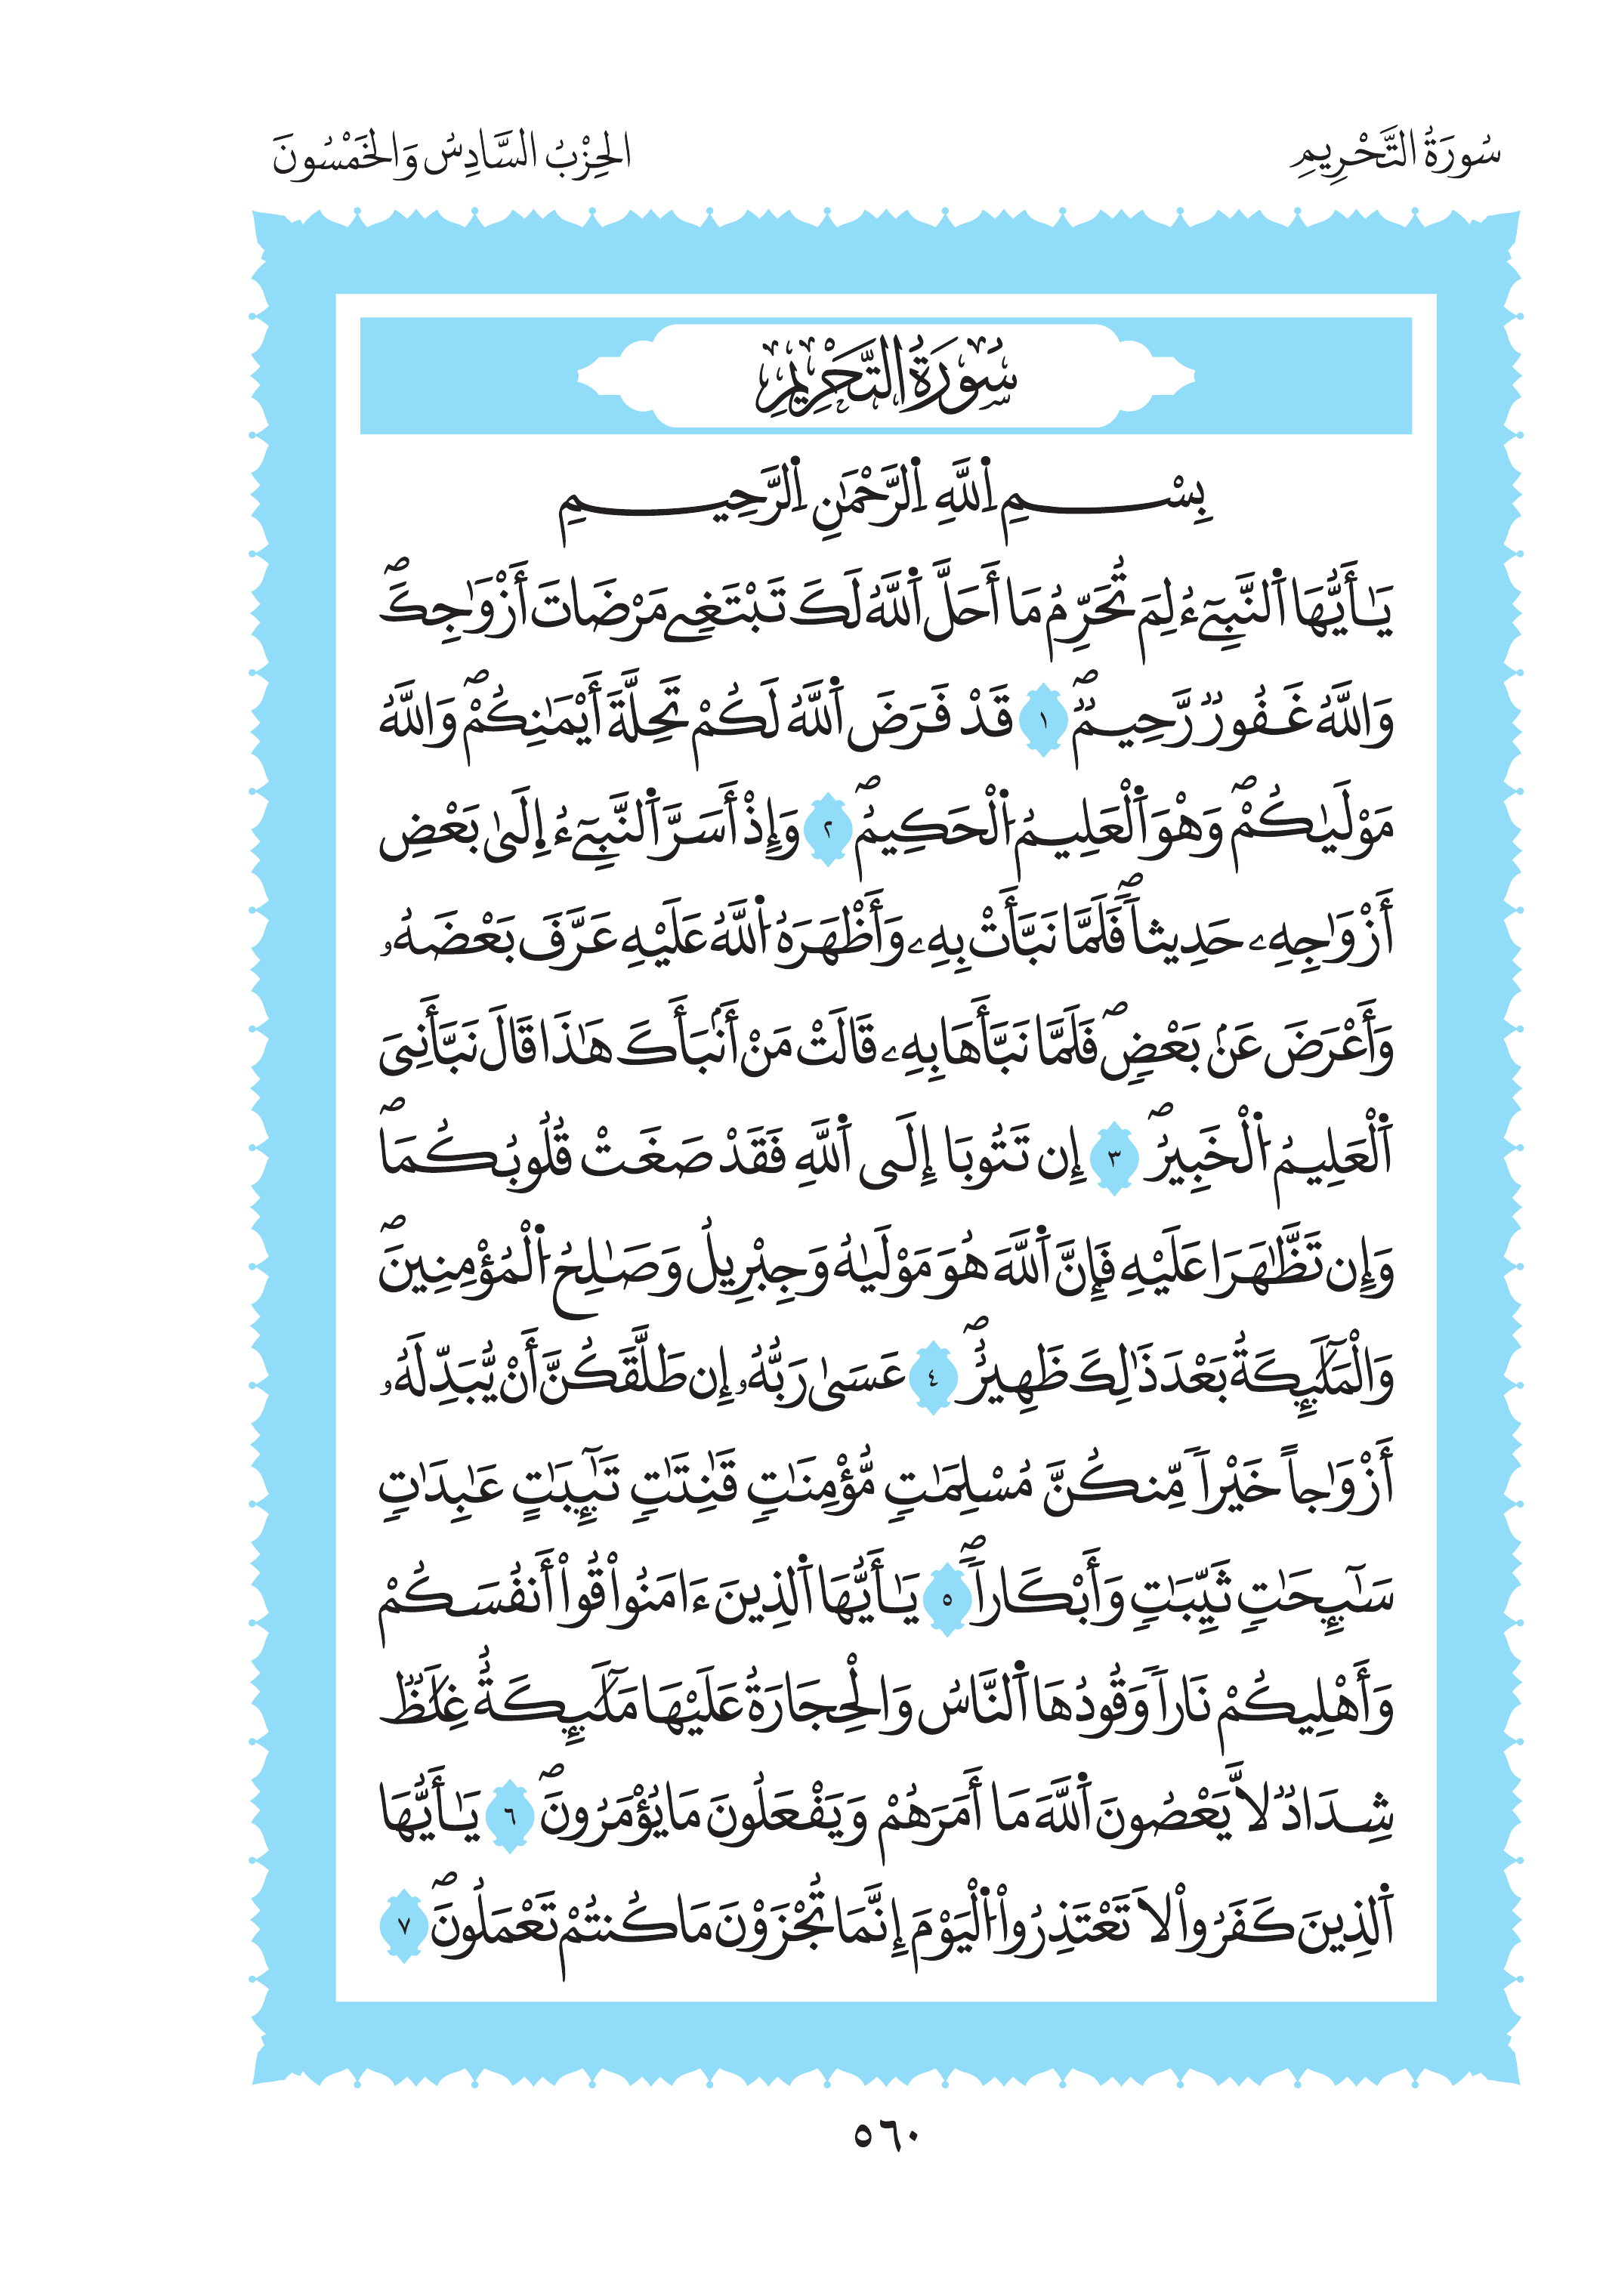 سُورَةُ التَّحْرِيمِ
الحِزْبُ السَّادِسُ وَالخَمْسُونَ
سُورَةُ التَّحْرِيمِ
بِسْمِ اِ۬للَّهِ اِ۬لرَّحْمَٰنِ اِ۬لرَّحِيمِ
يَٰأَيُّهَا اَ۬لنَّبِےٓءُ لِمَ تُحَرِّمُ مَا أَحَلَّ اَ۬للَّهُ لَكَ تَبْتَغِے مَرْضَاتَ أَزْوَٰجِكَۖ
وَاللَّهُ غَفُورٞ رَّحِيمٞۖ ١ قَدْ فَرَضَ اَ۬للَّهُ لَكُمْ تَحِلَّةَ أَيْمَٰنِكُمْۖ وَاللَّهُ
مَوْلَيٰكُمْۖ وَهْوَ اَ۬لْعَلِيمُ اُ۬لْحَكِيمُۖ ٢ وَإِذْ أَسَرَّ اَ۬لنَّبِےٓءُ اِ۪لَىٰ بَعْضِ
أَزْوَٰجِهِۦ حَدِيثاٗۖ فَلَمَّا نَبَّأَتْ بِهِۦ وَأَظْهَرَهُ اُ۬للَّهُ عَلَيْهِ عَرَّفَ بَعْضَهُۥ
وَأَعْرَضَ عَنۢ بَعْضٖۖ فَلَمَّا نَبَّأَهَا بِهِۦ قَالَتْ مَنْ أَنۢبَأَكَ هَٰذَا قَالَ نَبَّأَنِىَ
اَ۬لْعَلِيمُ اُ۬لْخَبِيرُۖ ٣ إِن تَتُوبَا إِلَى اَ۬للَّهِ فَقَدْ صَغَتْ قُلُوبُكُمَاۖ
وَإِن تَظَّٰهَرَا عَلَيْهِ فَإِنَّ اَ۬للَّهَ هُوَ مَوْلَيٰهُ وَجِبْرِيلُ وَصَٰلِحُ اُ۬لْمُؤْمِنِينَۖ
وَالْمَلَٰٓئِكَةُ بَعْدَ ذَٰلِكَ ظَهِيرٌۖ ٤ عَسَىٰ رَبُّهُۥ إِن طَلَّقَكُنَّ أَنْ يُّبَدِّلَهُۥ
أَزْوَٰجاً خَيْراٗ مِّنكُنَّ مُسْلِمَٰتٖ مُّؤْمِنَٰتٖ قَٰنِتَٰتٖ تَٰٓئِبَٰتٍ عَٰبِدَٰتٖ
سَٰٓئِحَٰتٖ ثَيِّبَٰتٖ وَأَبْكَاراٗۖ ٥ يَٰأَيُّهَا اَ۬لذِينَ ءَامَنُواْ قُواْ أَنفُسَكُمْ
وَأَهْلِيكُمْ نَاراٗ وَقُودُهَا اَ۬لنَّاسُ وَالْحِجَارَةُ عَلَيْهَا مَلَٰٓئِكَةٌ غِلَٰظٞ
شِدَادٞ لَّا يَعْصُونَ اَ۬للَّهَ مَا أَمَرَهُمْ وَيَفْعَلُونَ مَا يُؤْمَرُونَۖ ٦ يَٰأَيُّهَا
اَ۬لذِينَ كَفَرُواْ لَا تَعْتَذِرُواْ اُ۬لْيَوْمَ إِنَّمَا تُجْزَوْنَ مَا كُنتُمْ تَعْمَلُونَۖ ٧
٥٦٠